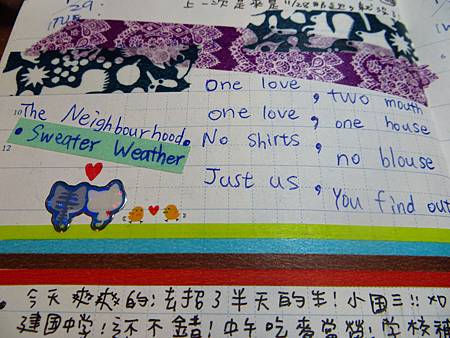 29
上一次是來是11/28
10
The Neighbourhood.
• Sweater Weather
12
one love, two mouth
one love, one house
No shirts, no blouse
Just us, You find out
• 今天爽爽的!去招了半天的生!小國三!!
建國中學!還不錯!中午吃麥當勞!學校補